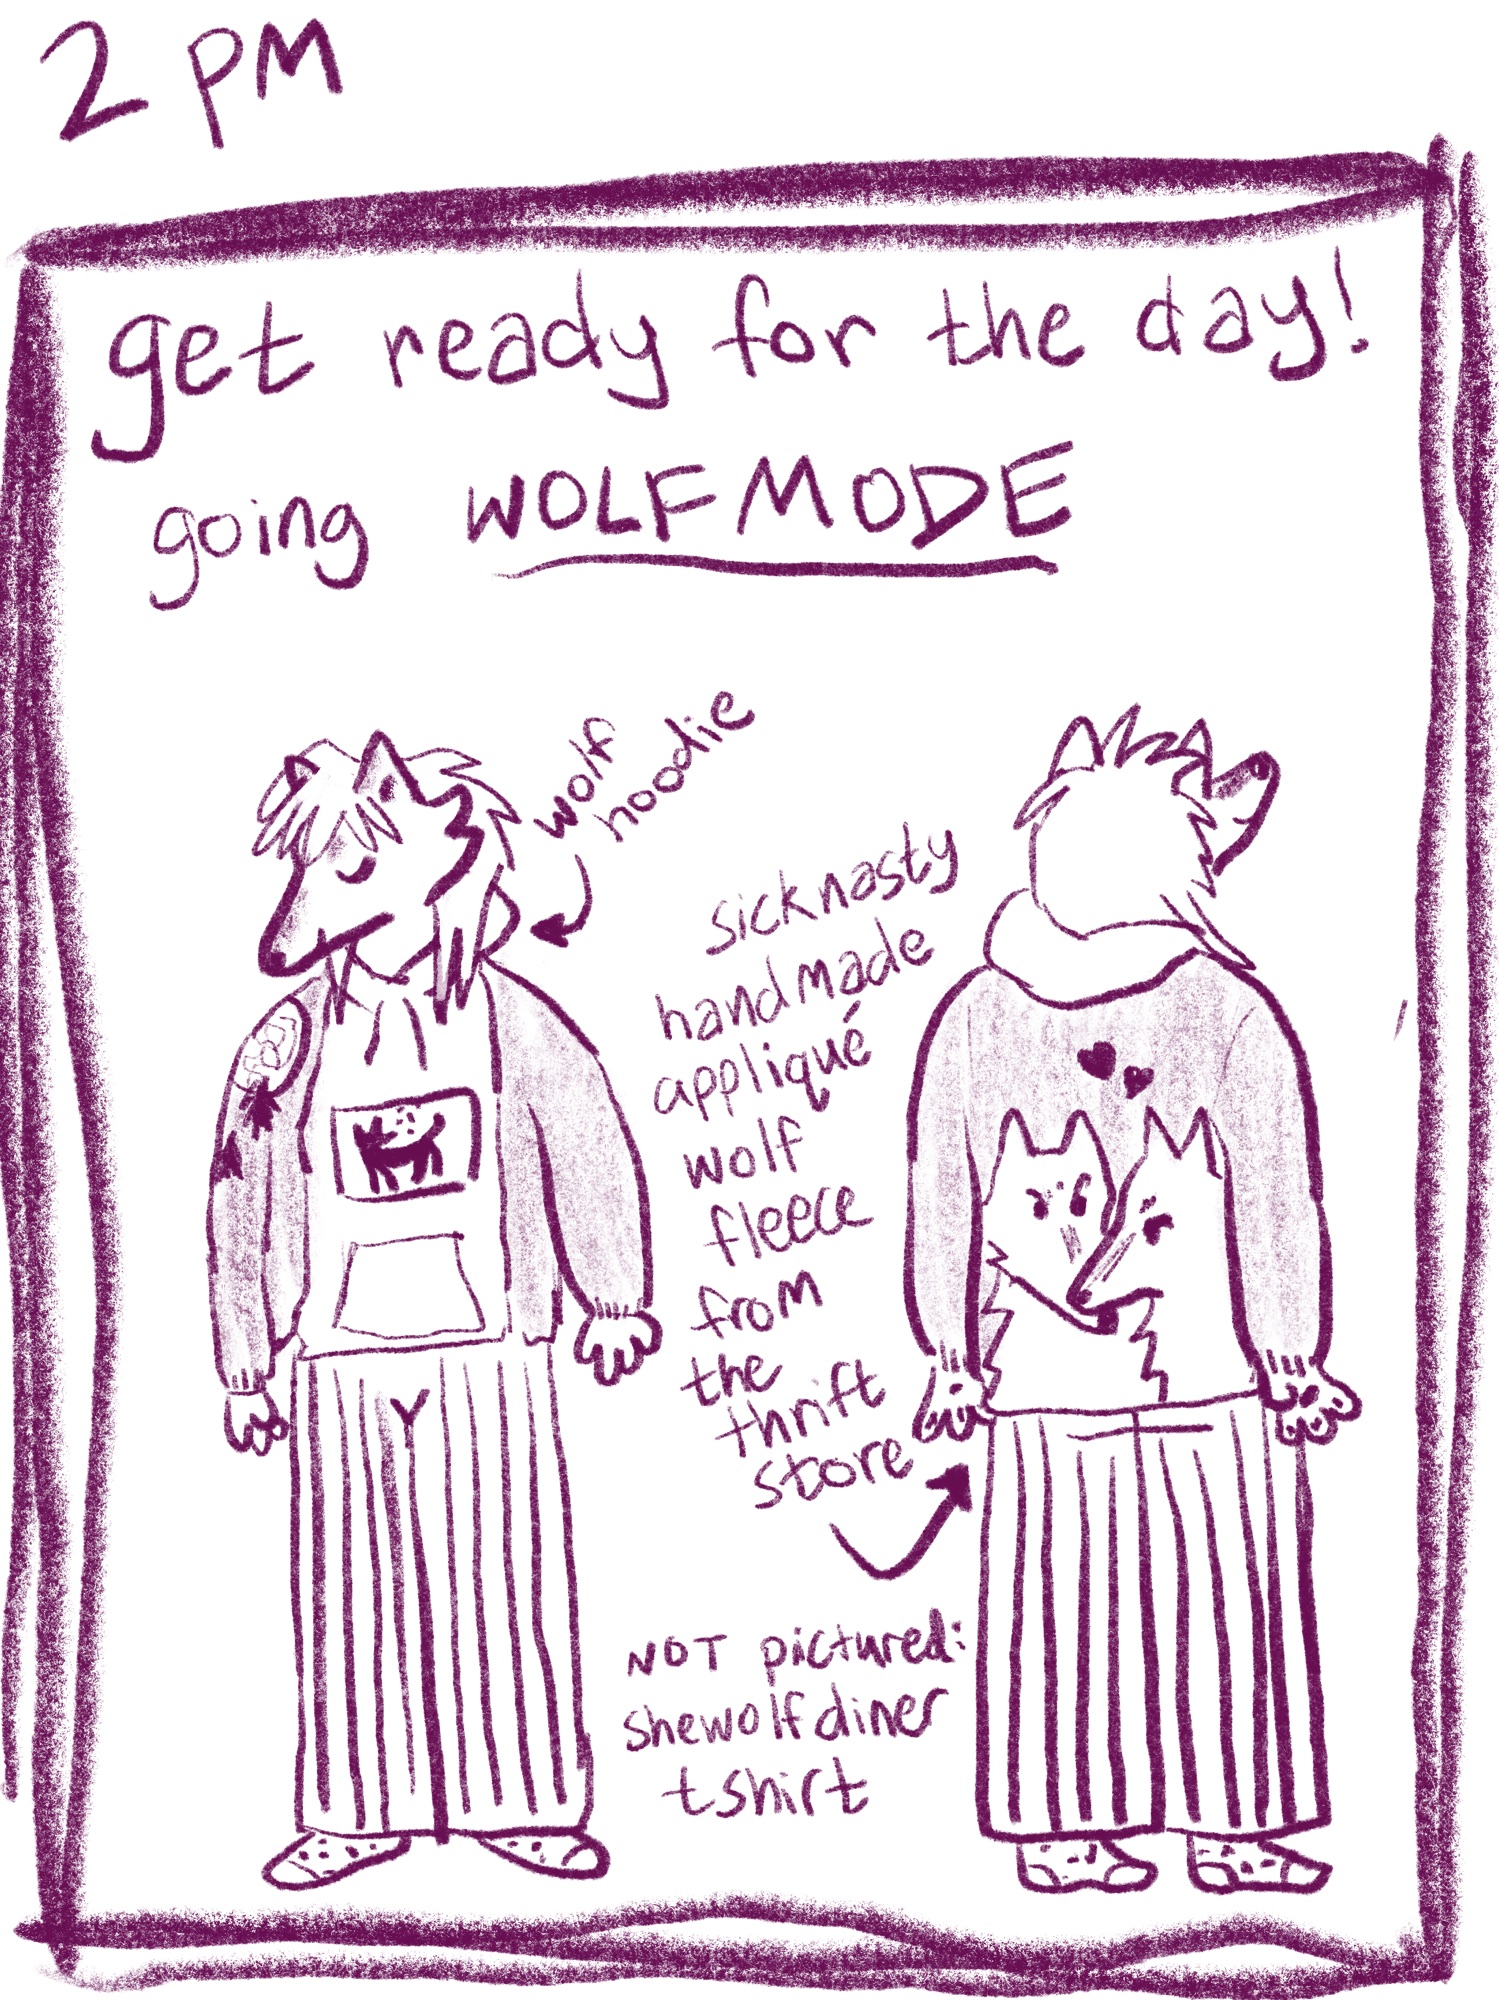 2 PM
get ready for the day!
going WOLF MODE
wolf
hoodie
sicknasty
handmade
appliqué
wolf
fleece
from
the
thrift
store
NOT pictured:
shewolfdiner
tshirt